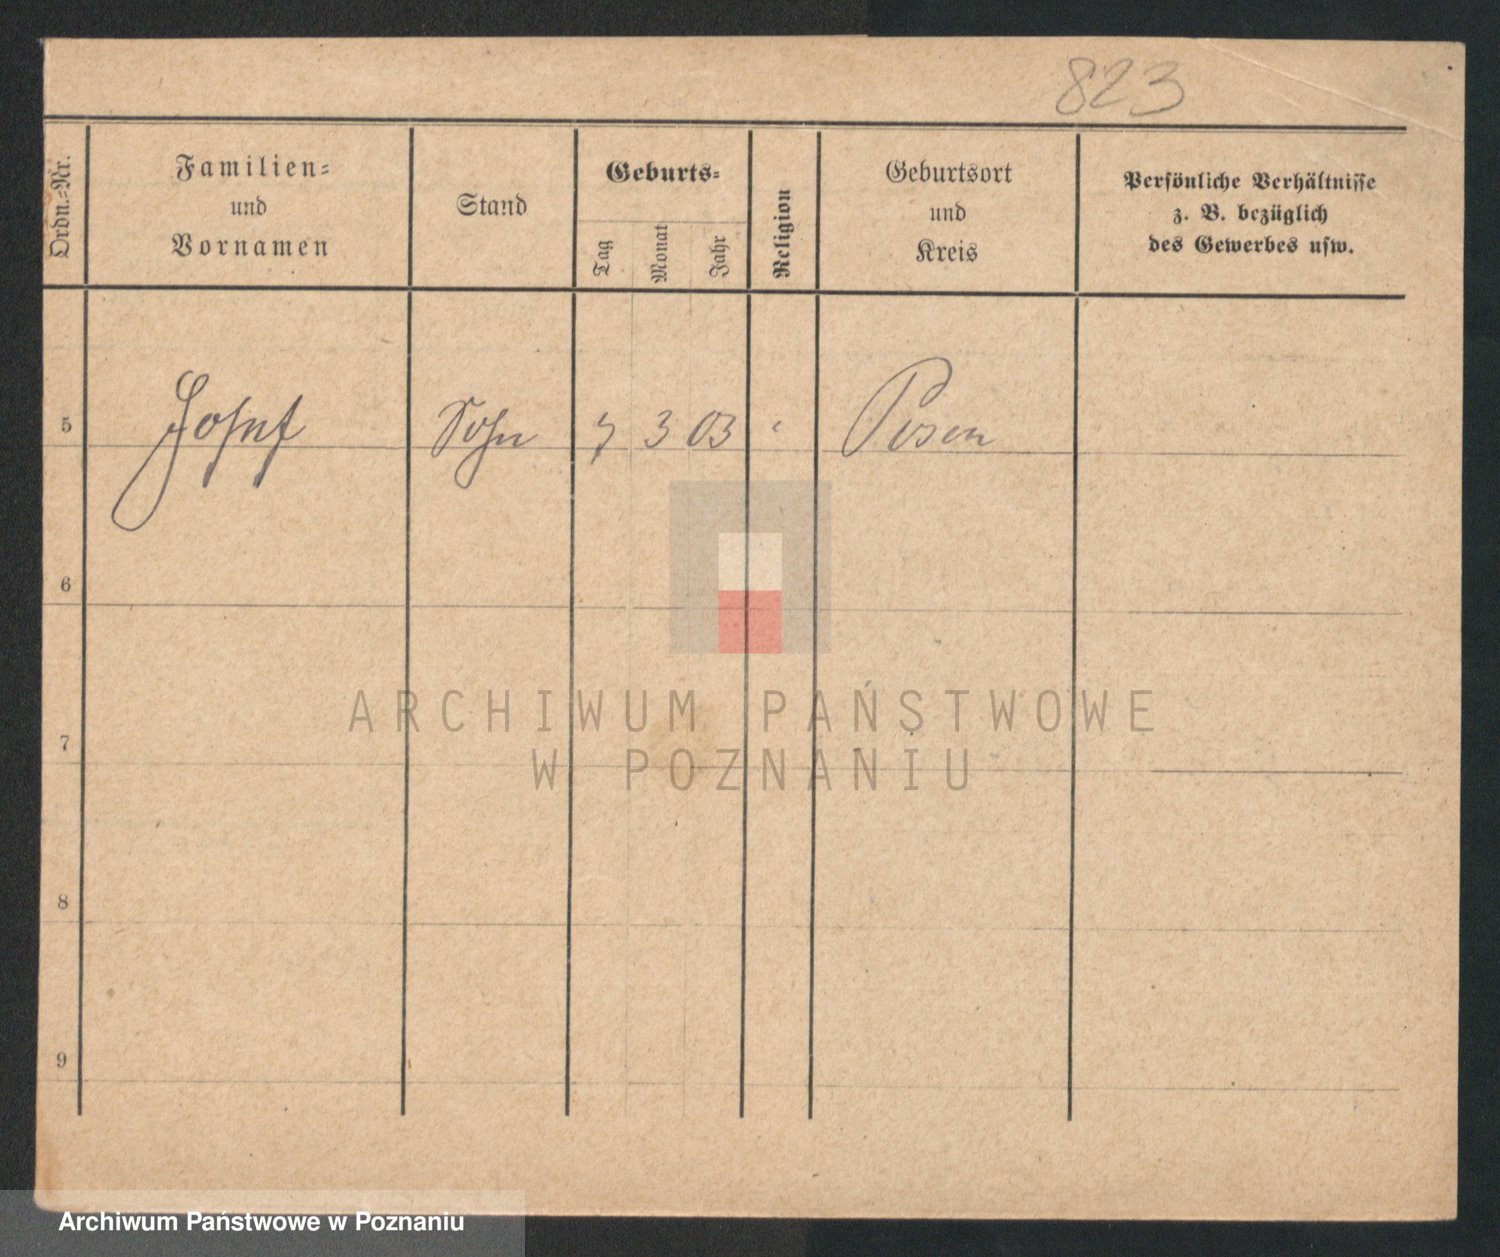 823
Ordn.-Nr.
Familien-
und
Vornamen
Stand
Geburts-
Tag
Monat
Jahr
Religion
Geburtsort
und
Kreis
Persönliche Verhältnisse
z. B. bezüglich
des Gewerbes usw.
5 Josef Sohn 7 3 03 " Posen
6
ARCHIWUM PAŃSTWOWE
7
W POZNANIU
8
9
Archiwum Państwowe w Poznaniu